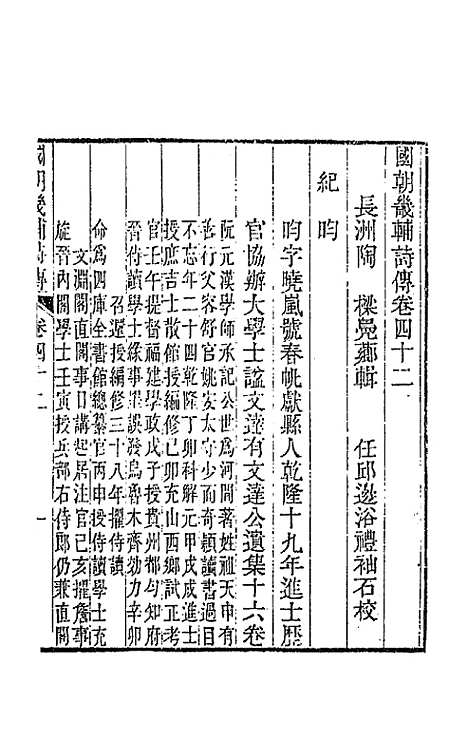 國朝畿輔詩傳卷四十二
長洲陶 樑鳧薌輯 任邱邊浴禮袖石校
紀昀
昀字曉嵐號春帆獻縣人乾隆十九年進士歷
官協辦大學士諡文達有文達公遺集十六卷
阮元漢學師承記公世爲河間著姓祖天申有
善行父容舒官姚安太守少而奇穎讀書過目
不忘年二十四乾隆丁卯科解元甲戌成進士
授庶吉士散館授編修己卯充山西鄉試正考
官壬午提督福建學政戊子授貴州都勻知府
晉侍讀學士緣事罣誤發烏魯木齊効力辛卯
召還授編修三十八年擢侍讀
命爲四庫全書館總纂官丙申授侍讀學士充
文淵閣直閣事日講起居注官己亥擢詹事
旋晉內閣學士壬寅授兵部右侍郎仍兼直閣
國朝畿輔詩傳 卷四十二 一